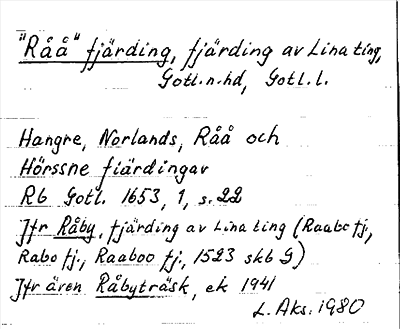 "Råå" fjärding, fjärding av Lina ting,
Gotl.n.hd, Gotl.l.
Hangre, Norlands, Råå och
Hörssne fiärdingar
Rb Gotl. 1653, 1, s. 22
Jfr Råby, fjärding av Lina ting (Raabc fj.,
Rabo fj., Raaboo fj., 1523 skb G)
Jfr även Råbyträsk, ek 1941
L. Aks. 1980